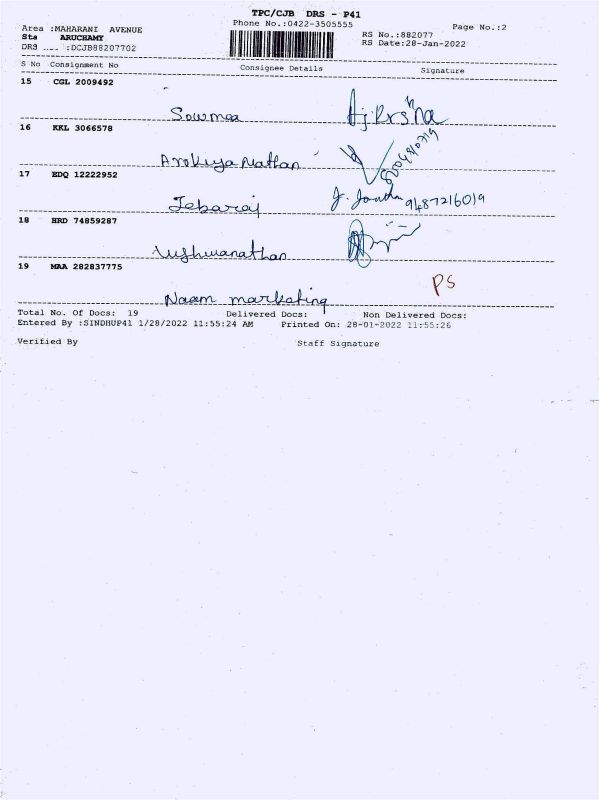 TPC/CJB DRS - P41
Area :MAHARANI AVENUE
Phone No.:0422-3505555
Page No.:2
Sta ARUCHAMY
RS No.:882077
DRS .... :DCJB88207702
RS Date:28-Jan-2022
S No Consignment No Consignee Details Signature
15 CGL 2009492
Sowmea
16 KKL 3066578
Arokiya Nathan
17 EDQ 12222952
Jebaraj 9487216019
18 HRD 74859287
Vishwanathan
19 MAA 282837775
PS
Naam marketing
Total No. Of Docs: 19 Delivered Docs: Non Delivered Docs:
Entered By :SINDHUP41 1/28/2022 11:55:24 AM Printed On: 28-01-2022 11:55:26
Verified By Staff Signature